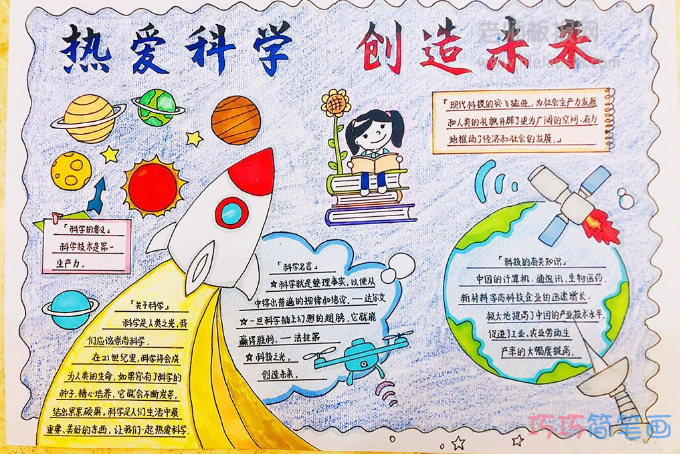 热爱科学 创造未来
「现代科技的突飞猛进，为社会生产力发展
和人类的文明开辟了更为广阔的空间，有力
地推动了经济和社会的发展。」
「科学的意义」
科学技术是第一
生产力。
「关于科学」
科学是人类之光，我
们应该崇尚科学。
在21世纪里，科学将会成
为人类的生命，如果你有了科学的
种子，精心培养，它就会不断发芽，
结出累累硕果，科学是人们生活中最
重要、美好的东西，让我们一起热爱科学。
「科学名言」
☆科学就是整理事实，以便从
中得出普遍的规律和结论。——达尔文
☆一旦科学插上幻想的翅膀，它就能
赢得胜利。——法拉第
☆科技之光，
创造未来。
「科技的有关知识」
中国的计算机、通讯、生物医药、
新材料等高科技企业的迅速增长，
极大地提高了中国的产业技术水平，
促进了工业、农业劳动生
产率的大幅度提高。
巧巧简笔画